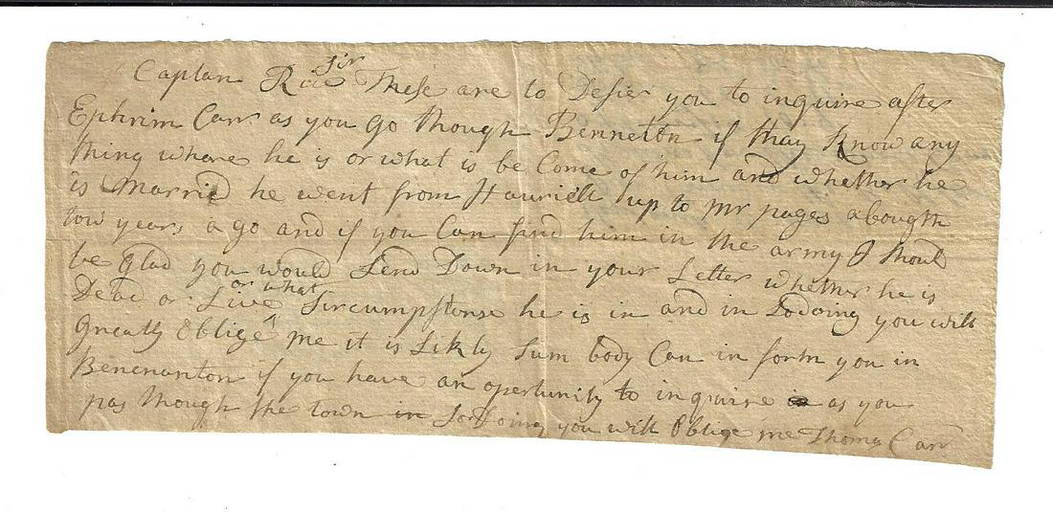 Captan Rice Sir These are to Desier you to inquire after
Ephrim Carr as you go though Benneton if thay know any
thing whare he is or what is be Come of him and whether he
is Marrid he went from up to Mr pages abougth
tow years a go and if you Can find him in the army I should
be glad you would Send Down in your Letter whether he is
Dead or Live or what Sircumpstonse he is in and in Sodoing you will
greatly Oblige me it is Likly Sum body Can in form you in
Benenanton if you have an opertunity to inquire as you
pas though the town in Sodoing you will Oblige me Thomas Carr